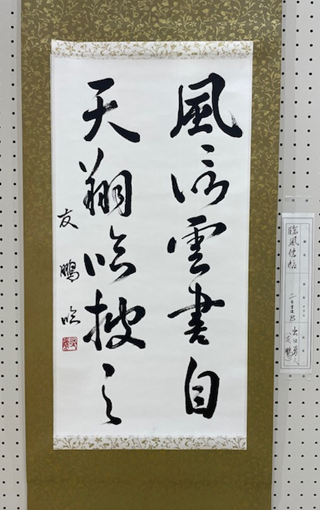 風信雲書自
天翔臨披之
友鵬臨
臨風信帖